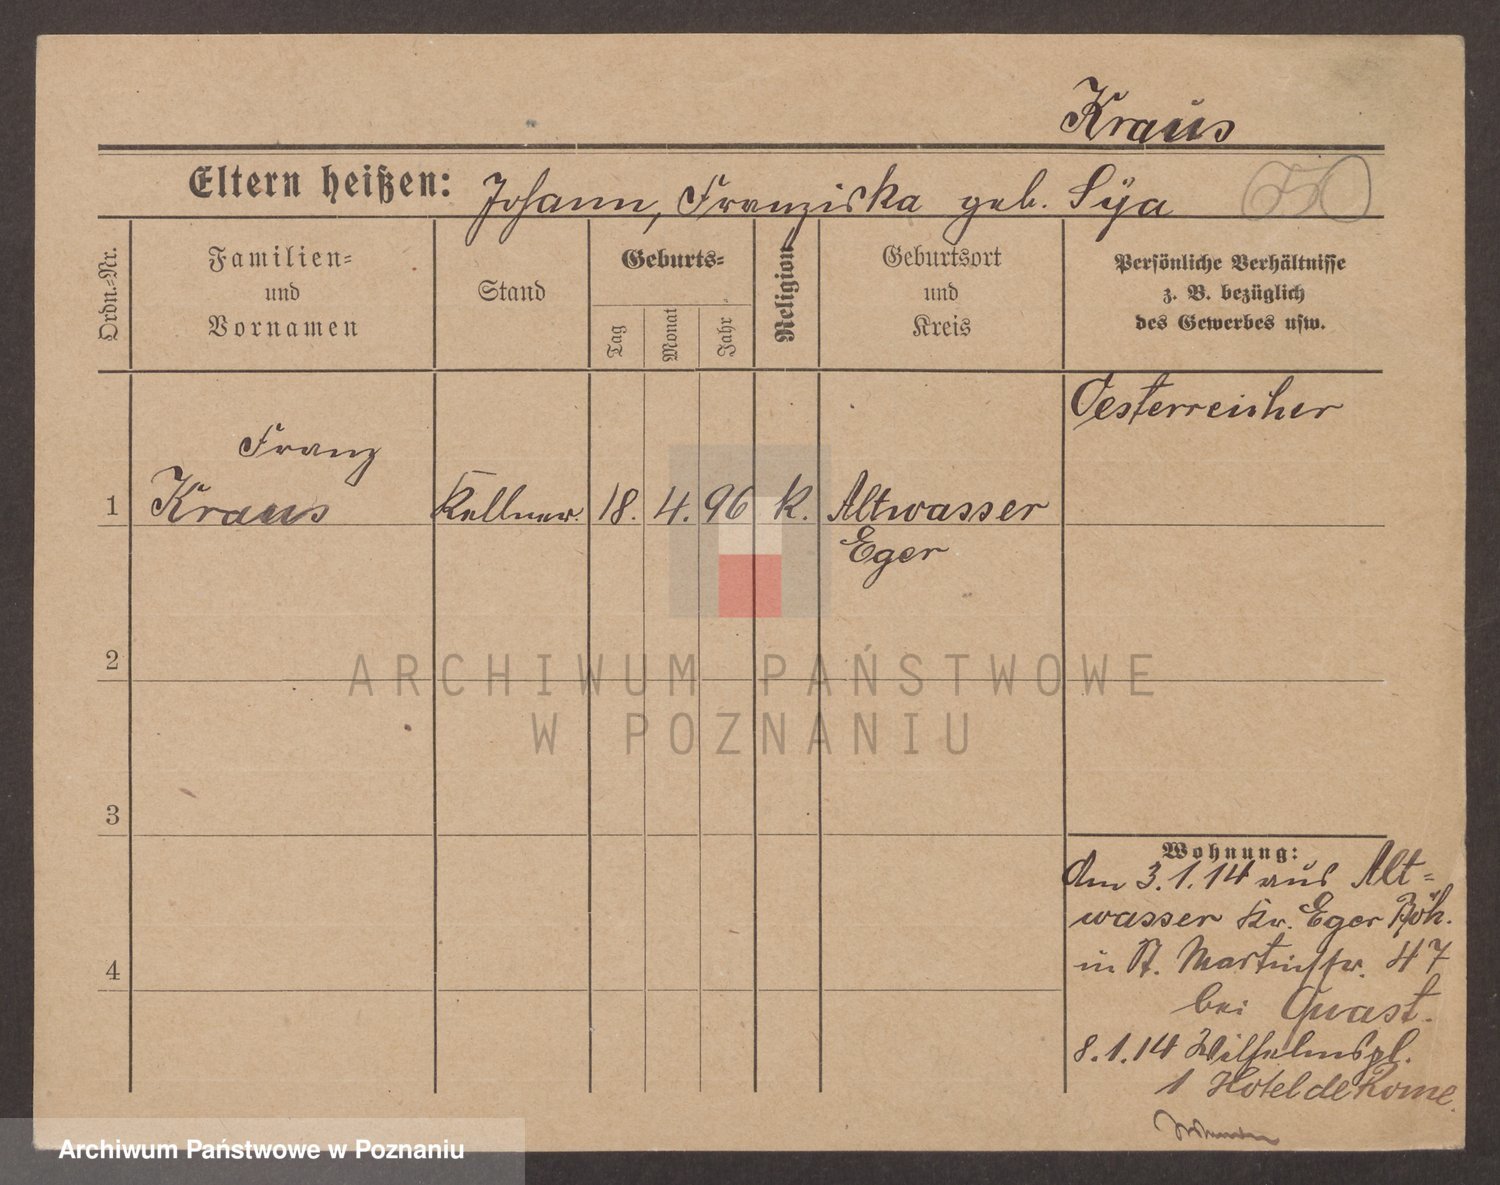 Kraus
Eltern heißen: Johann, Franziska geb. Sÿa
50
Ordn.-Nr.
Familien-
und
Vornamen
Stand
Geburts-
Tag
Monat
Jahr
Religion
Geburtsort
und
Kreis
Persönliche Verhältnisse
z. B. bezüglich
des Gewerbes usw.
Oesterreicher
Franz
1 Kraus Kellner. 18. 4. 96 k. Altwasser
Eger
2
ARCHIWUM PAŃSTWOWE
W POZNANIU
3
Wohnung:
Am 3.1.14 aus Alt-
wasser Kr. Eger Böh.
in St. Martinstr. 47
bei Quast.
8.1.14 Wilhelmspl.
1 Hotel de Rome.
4
Archiwum Państwowe w Poznaniu